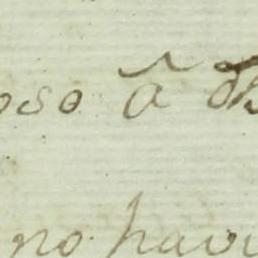 oso â
no havi